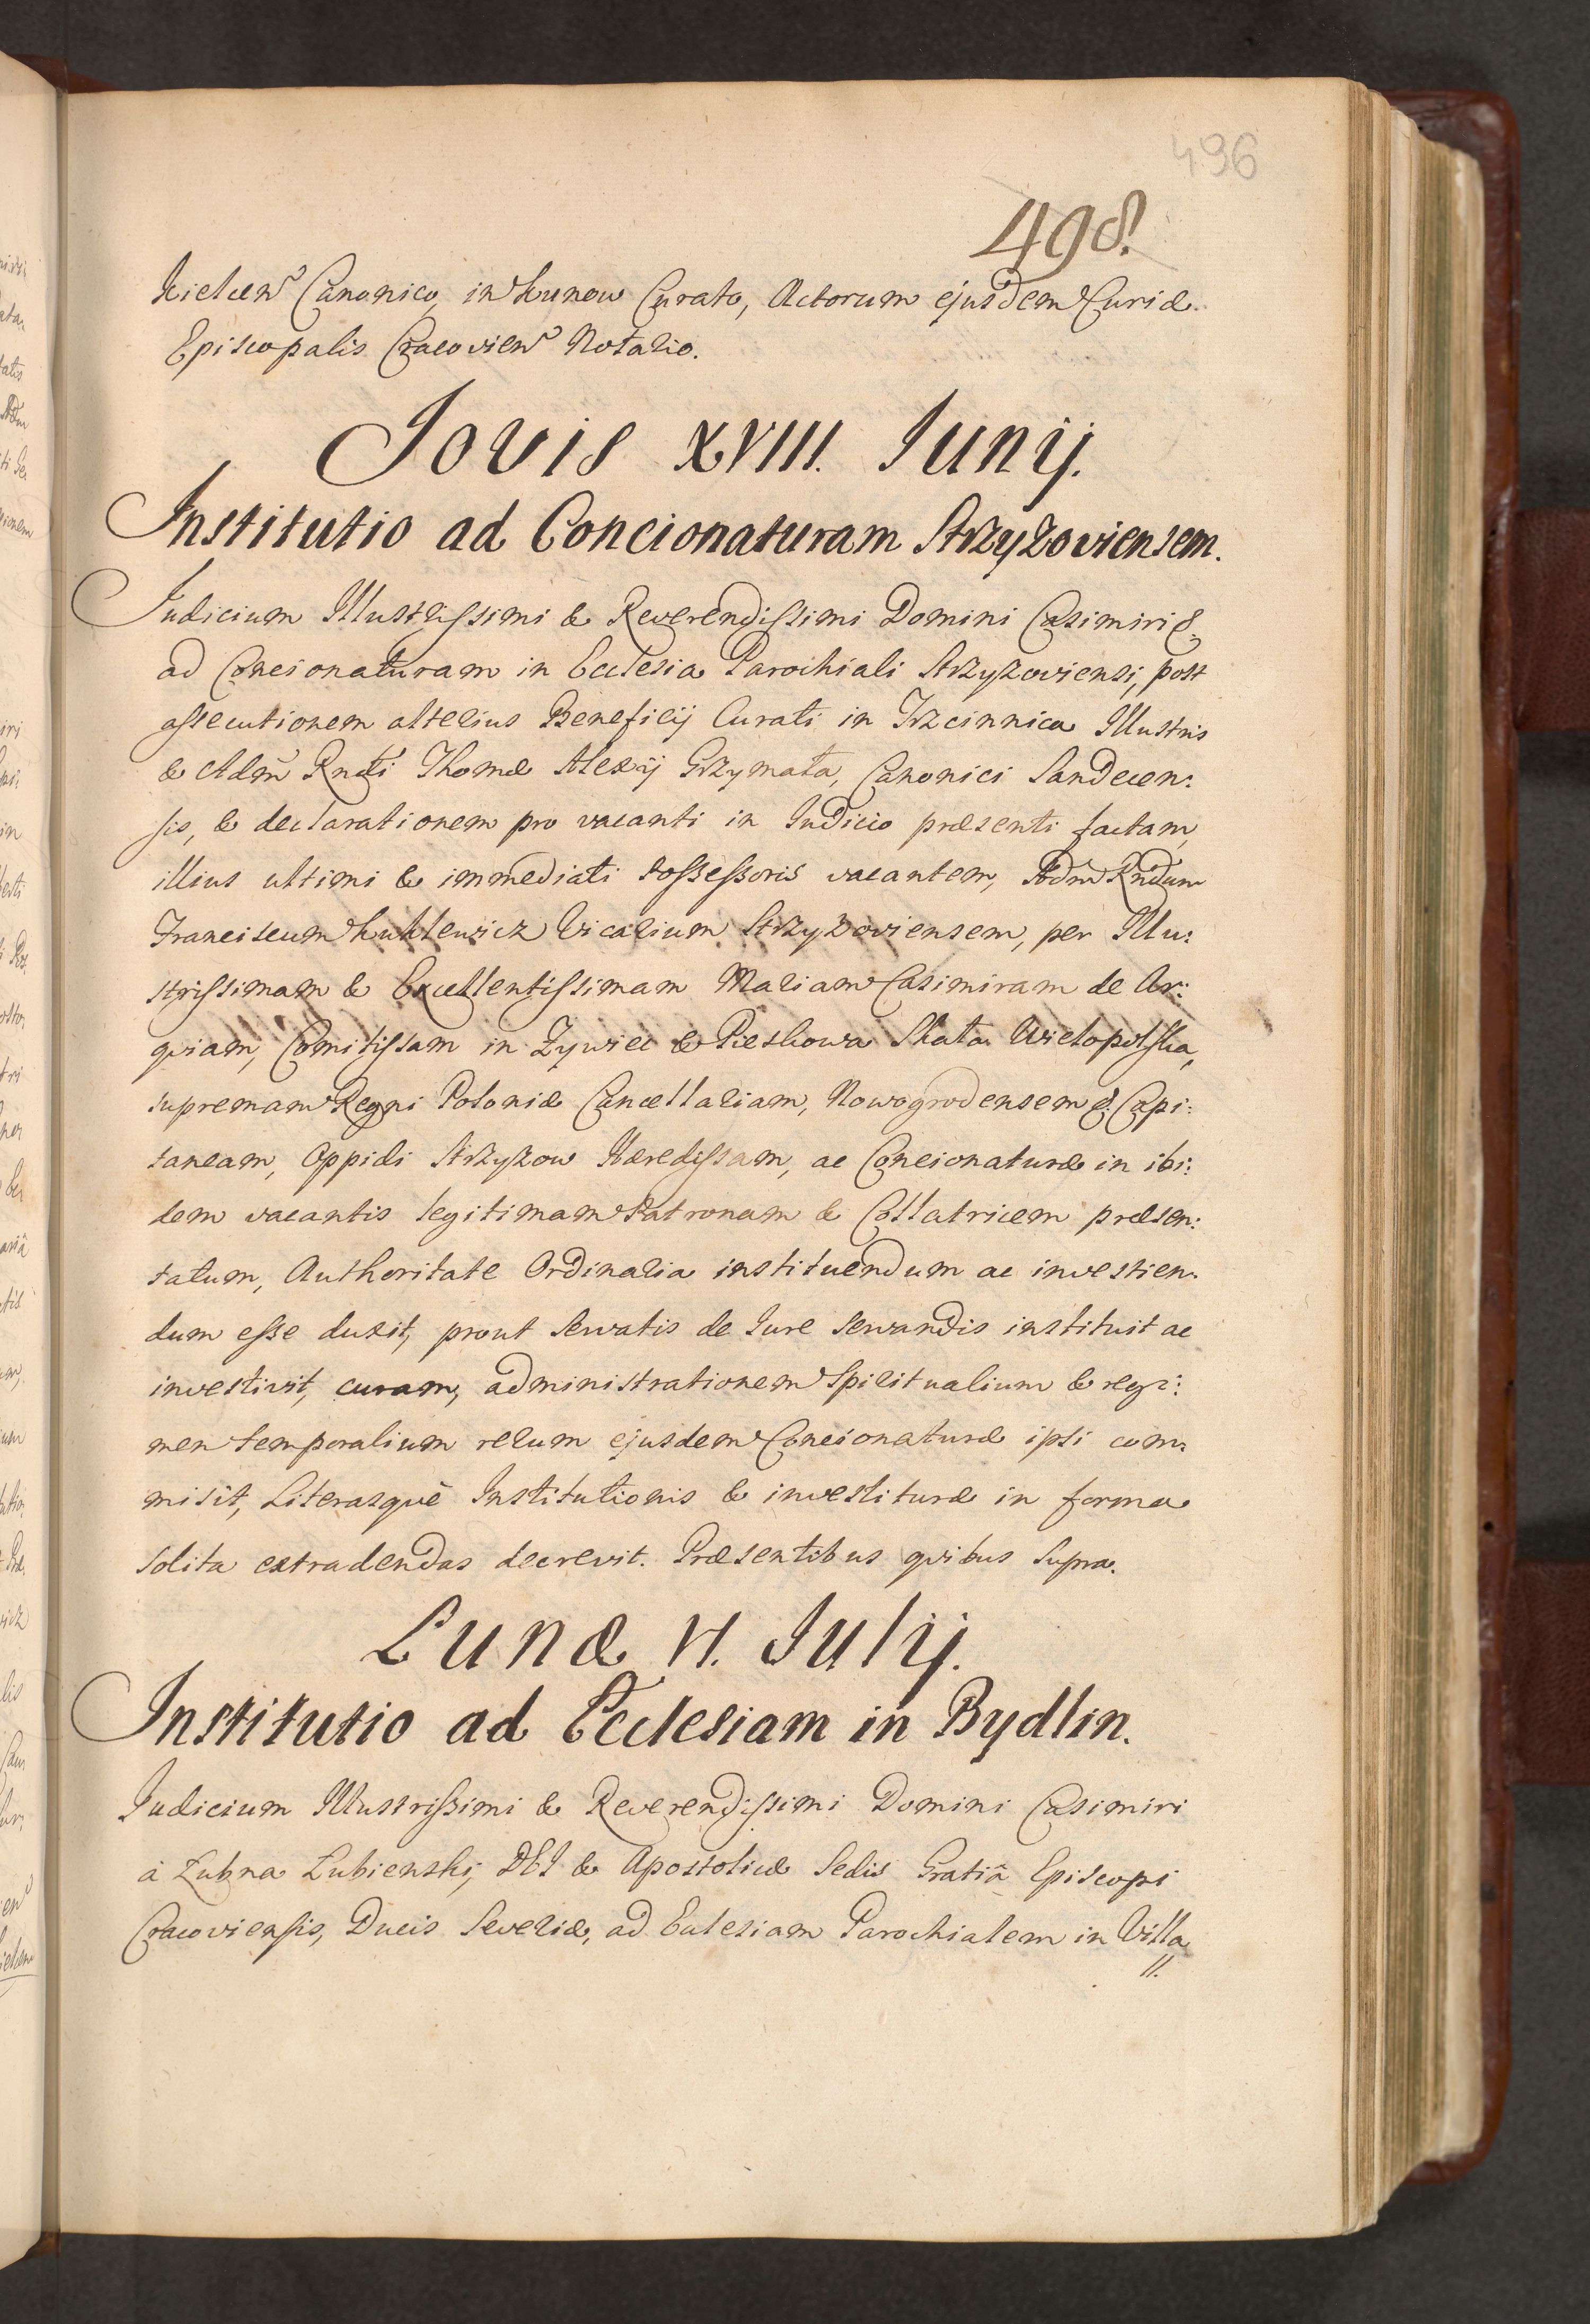 496
498.
Kielcen Canonico, in Kunow Curato, Actorum ejusdem Curiæ
Episcopalis Cracovien Notario.
Jovis XVIII. Junij.
Institutio ad Concionaturam Strzyzoviensem.
Judicium Illustrissimi & Reverendissimi Domini Casimiri &
ad Concionaturam in Ecclesia Parochiali Strzyzoviensi, post
assecutionem alterius Beneficij Curati in Trzcinnica Illustris
& Adm Rndi Thomæ Alexij Grzymała, Canonici Sandecen:
sis, & declarationem pro vacanti in Judicio præsenti factam,
illius ultimi & immediati Possessoris vacantem, Adm Rndum
Franciscum Kuklewicz Vicarium Strzyzoviensem, per Illu:
strissimam & Excellentissimam Mariam Casimiram de Ar:
qviam, Comitissam in Zywiec & Pieskowa Skała Wielopolska,
supremam Regni Poloniæ Cancellariam, Nowogrodensem & Capi:
taneam, Oppidi Strzyzow Hæredissam, ac Concionaturæ in ibi:
dem vacantis legitimam Patronam & Collatricem præsen:
tatum, Authoritate Ordinaria instituendum ac investien:
dum esse duxit, prout servatis de Jure servandis instituit ac
investivit, curam, administrationem Spiritualium & regi:
men temporalium rerum ejusdem Concionaturæ ipsi com:
misit, Literasquè Institutionis & investituræ in forma
solita extradendas decrevit. Præsentibus qvibus supra.
Lunæ VI. Julij.
Institutio ad Ecclesiam in Bydlin.
Judicium Illustrissimi & Reverendissimi Domini Casimiri
à Łubna Łubienski, DEI & Apostolicæ Sedis Gratiâ Episcopi
Cracoviensis, Ducis Severiæ, ad Ecclesiam Parochialem in Villa
//.